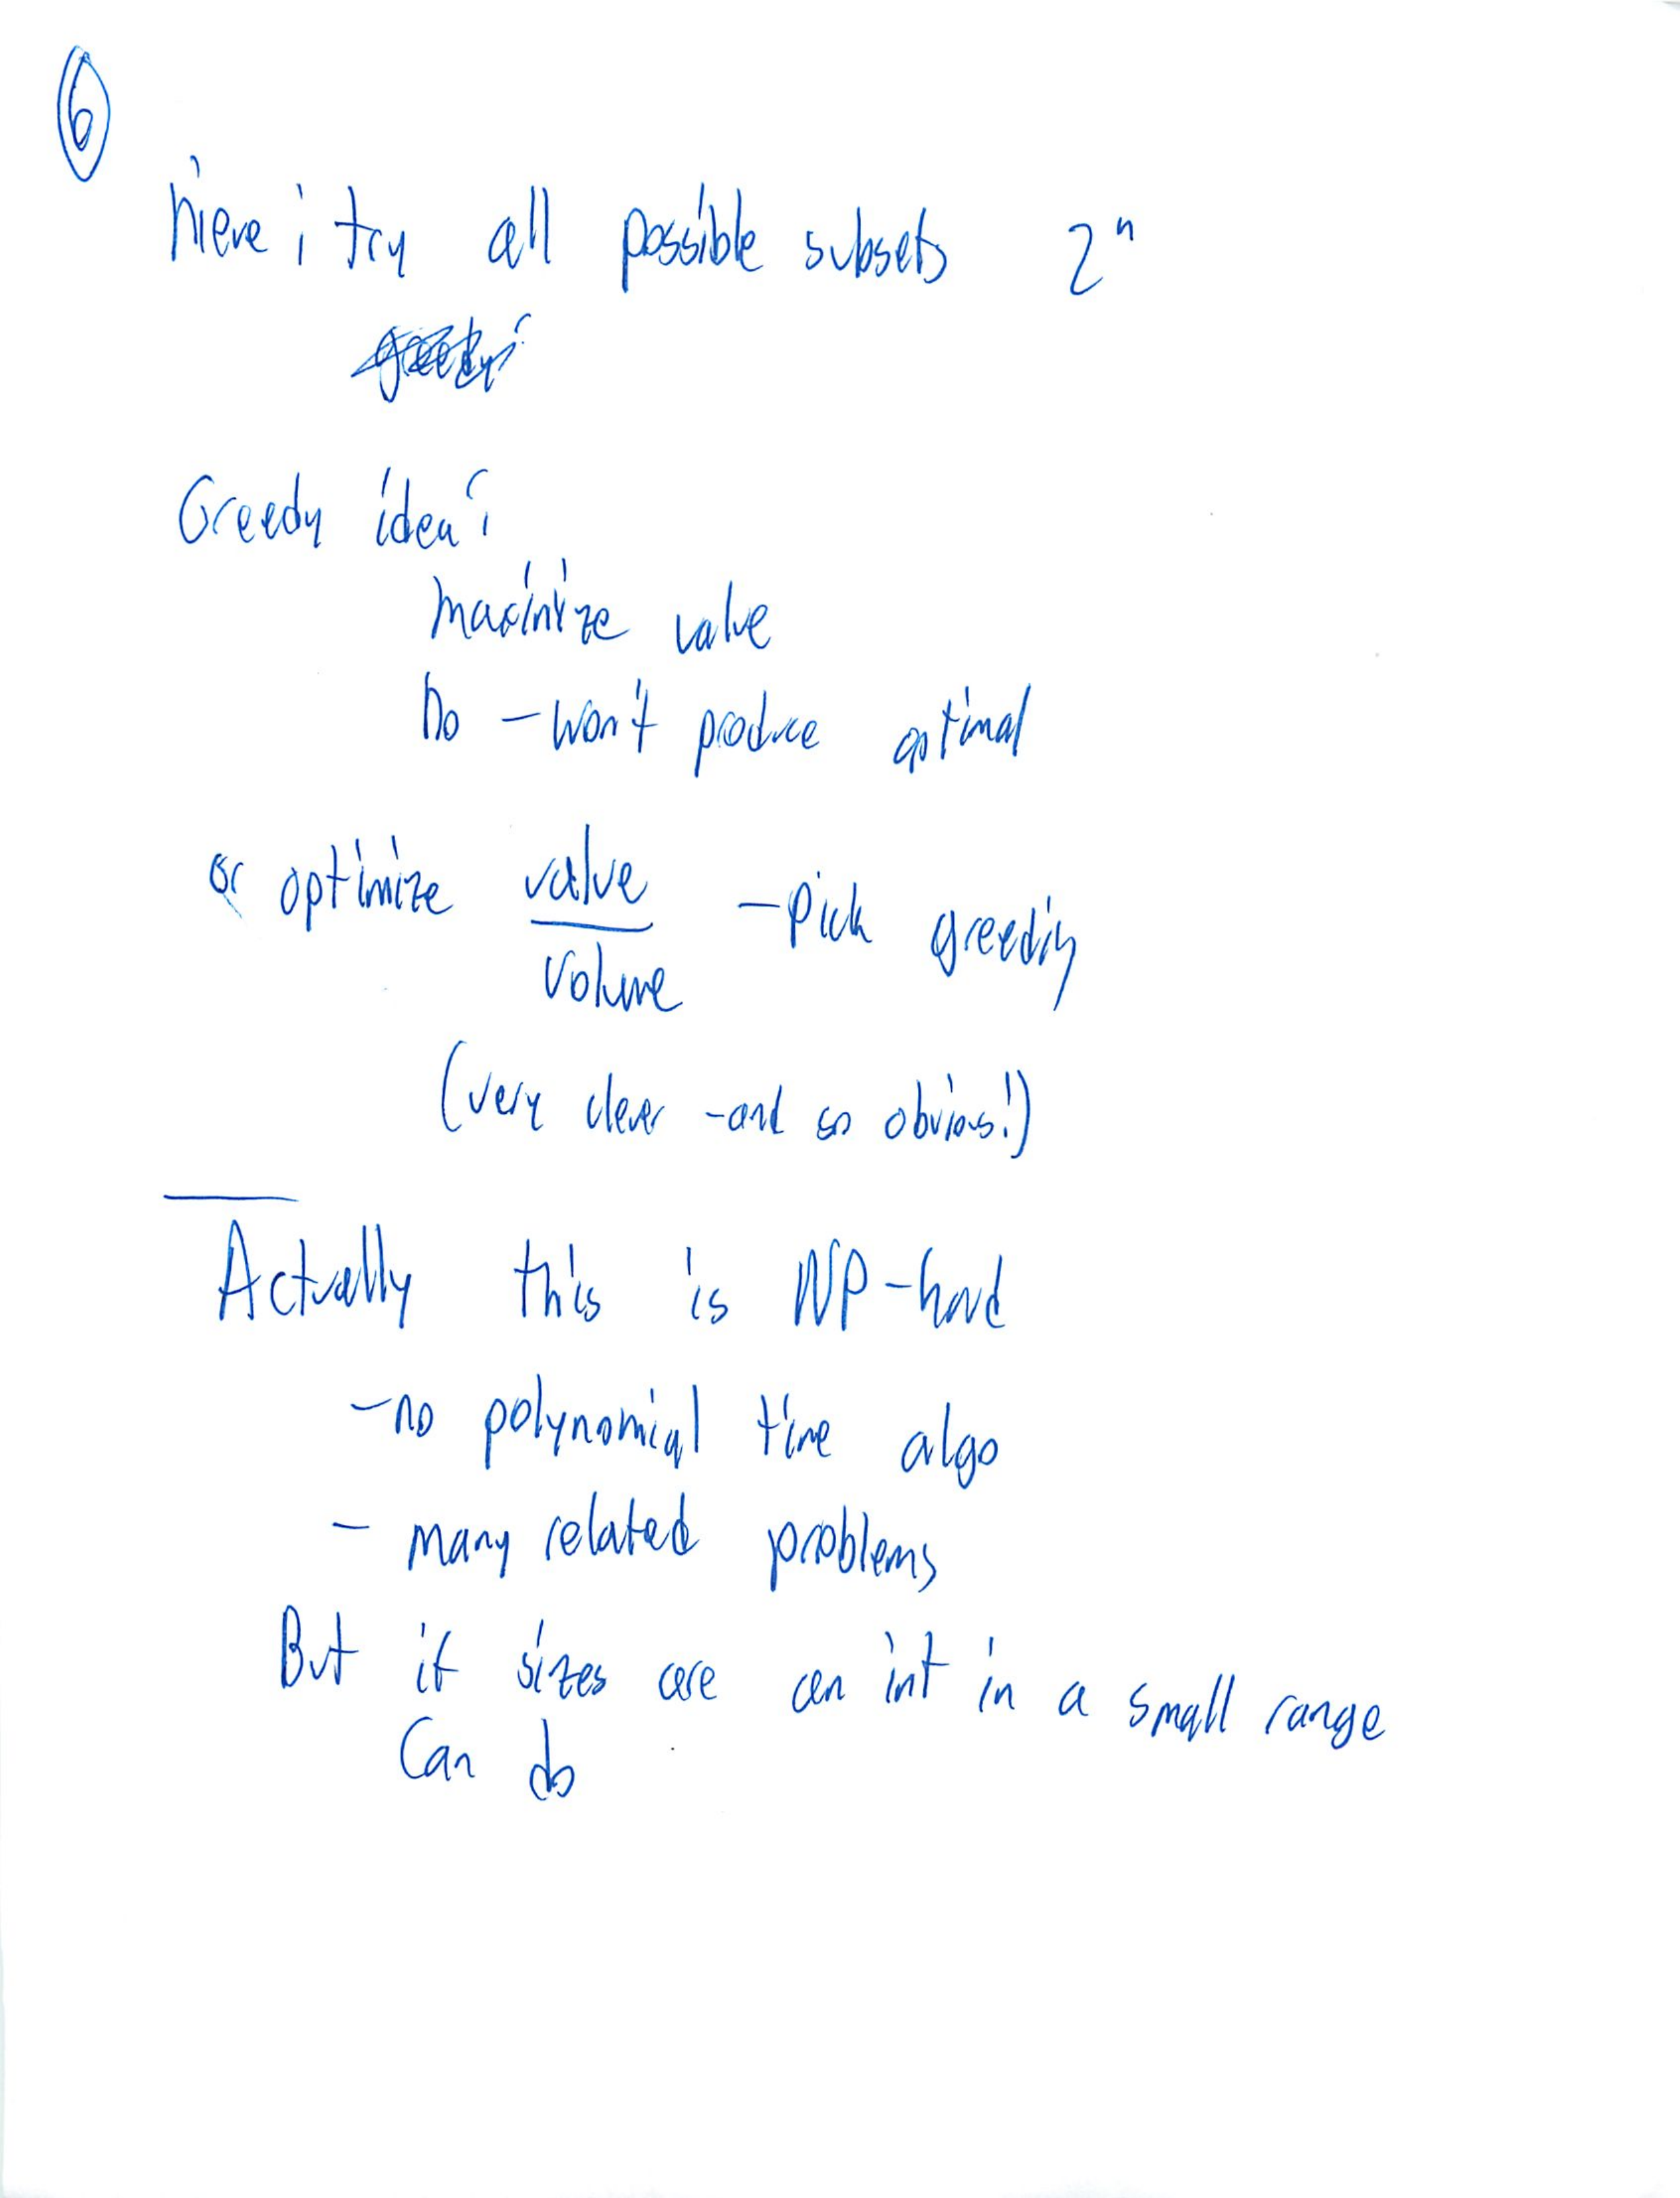 6
nieve : try all possible subsets 2^n
greedy:
Greedy idea:
maximize value
No - won't produce optimal
or optimize value - pick greedily
volume
(very clever - and so obvious!)
Actually this is NP-hard
- no polynomial time algo
- many related problems
But if sizes are an int in a small range
Can do